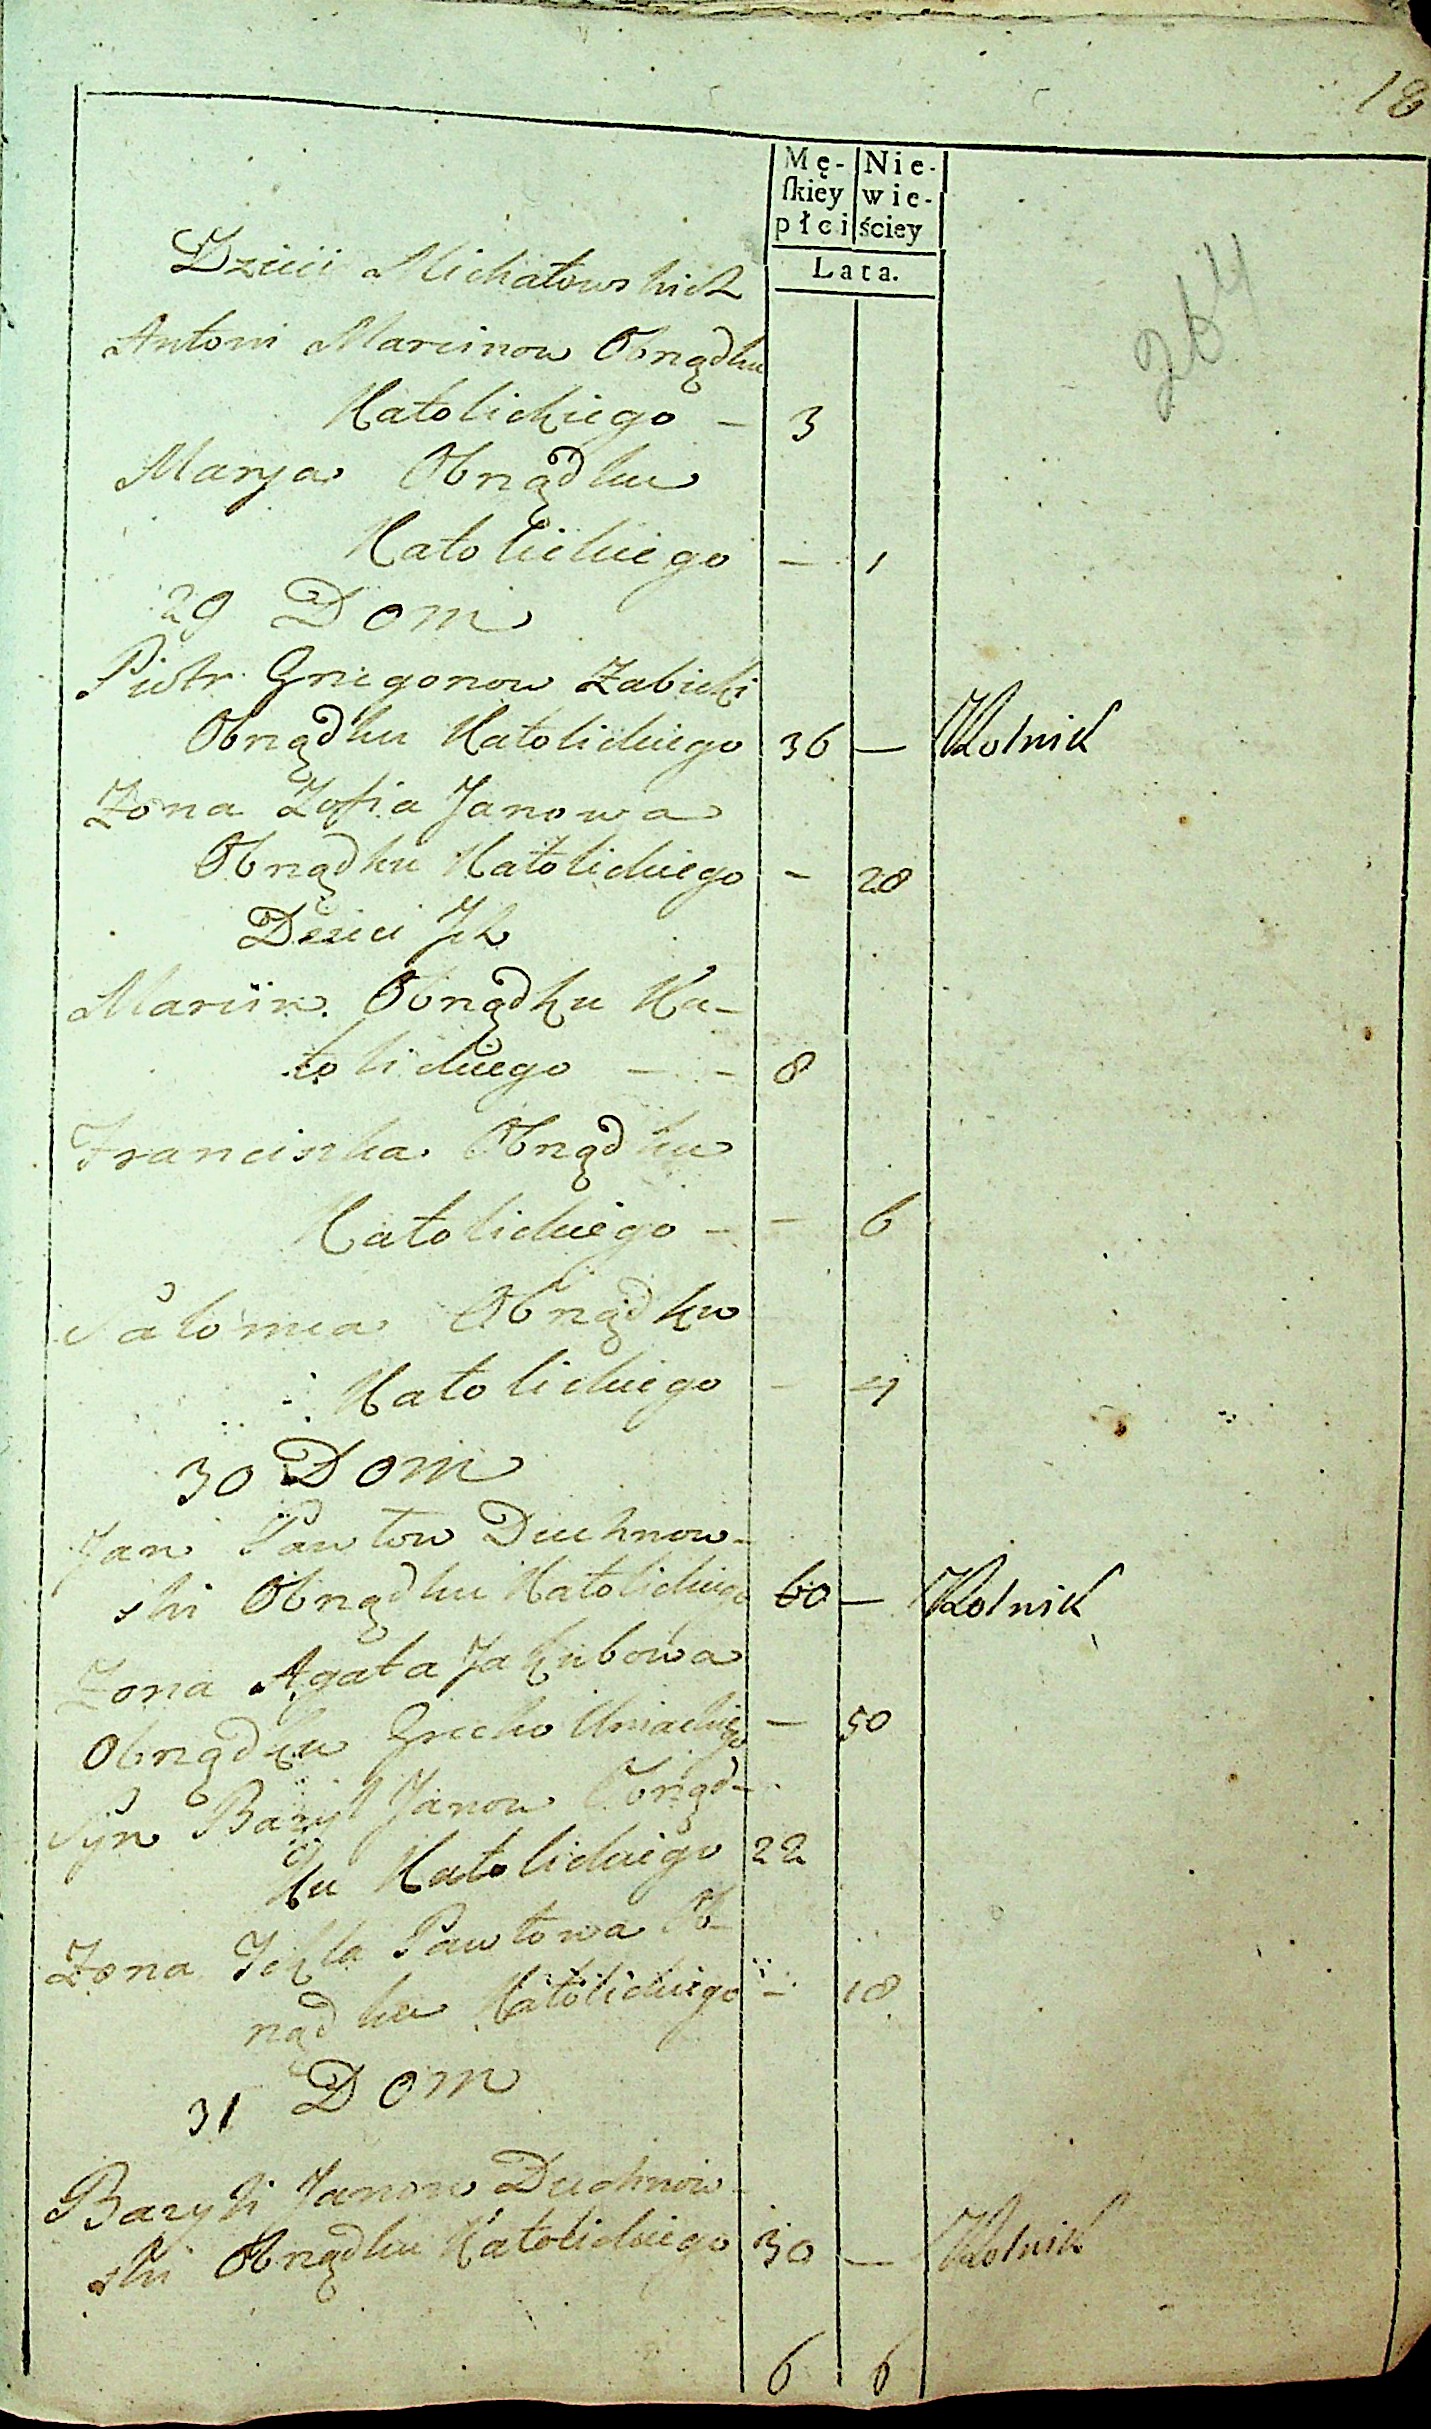 18
Mę- Nie-
ſkiey wie-
płci ściey
Lata.
264
Dzieci Michałowskich
Antoni Marcinow Obrządku
Katolickiego - 3
Marya Obrządku
Katolickiego - 1
29 Dom
Piotr Gregorow Zabicki
Obrządku Katolickiego 36 — Rolnik
Zona Zofia Janowa
Obrządku Katolickiego - 28
Dzieci Ich
Marcin Obrządku Ka-
tolickiego - - 8
Franciszka Obrządku
Katolickiego - - 6
Salomea Obrządku
Katolickiego - 4
30 Dom
Jan Pawłow Duchnow-
ski Obrządku Katolickiego 60 — Rolnik
Zona Agata Jakubowa
Obrządku Grecko Uniackiego — 50
Syn Bazyl Janow Obrząd-
ku Katolickiego 22
Zona Tekla Pawłowa Ob-
rządku Katolickiego - 18
31 Dom
Bazyli Janow Duchnow-
ski Obrządku Katolickiego 30 — Rolnik
6 6